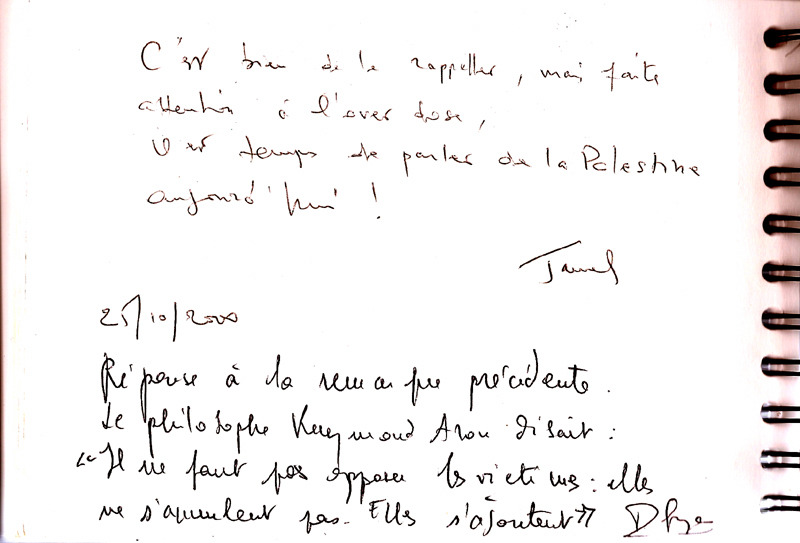 C'est bien de le rappeller, mais faite
attention à l'over dose,
Il est temps de parler de la Palestine
aujourd'hui !
25/10/2000
Réponse à la remarque précédente.
Le philosophe Raymond Aron disait :
"Il ne faut pas opposer les victimes : elles
ne s'annulent pas. Elles s'ajoutent"